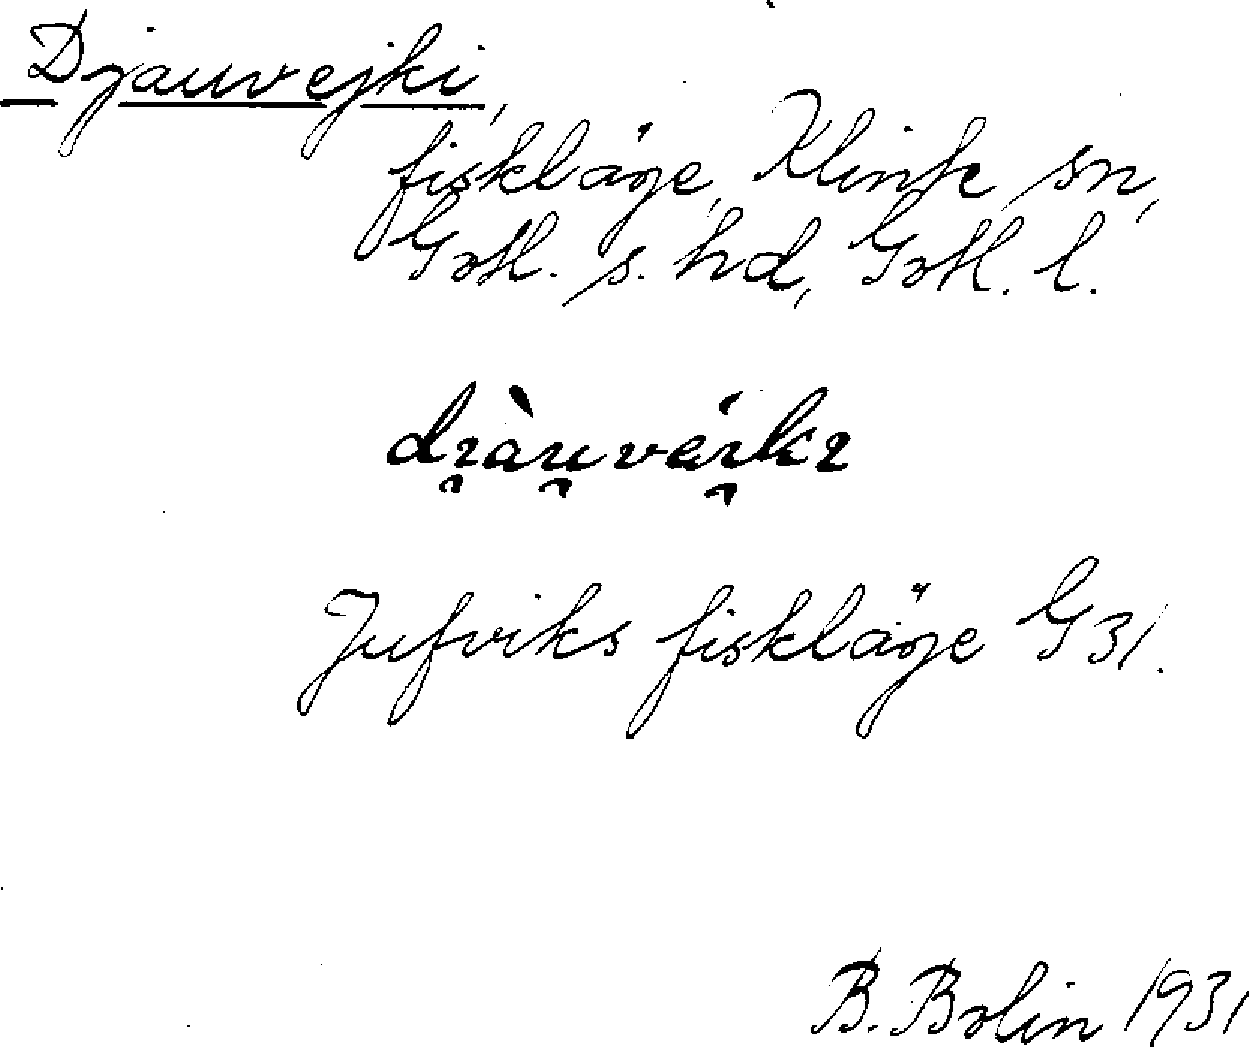 Djauvejki,
fiskläge, Klinte sn,
Gotl. s. hd, Gotl. l.
dɪ̯àu̯véɪ̯kɪ
Jufviks fiskläge G 31.
B. Bolin 1931